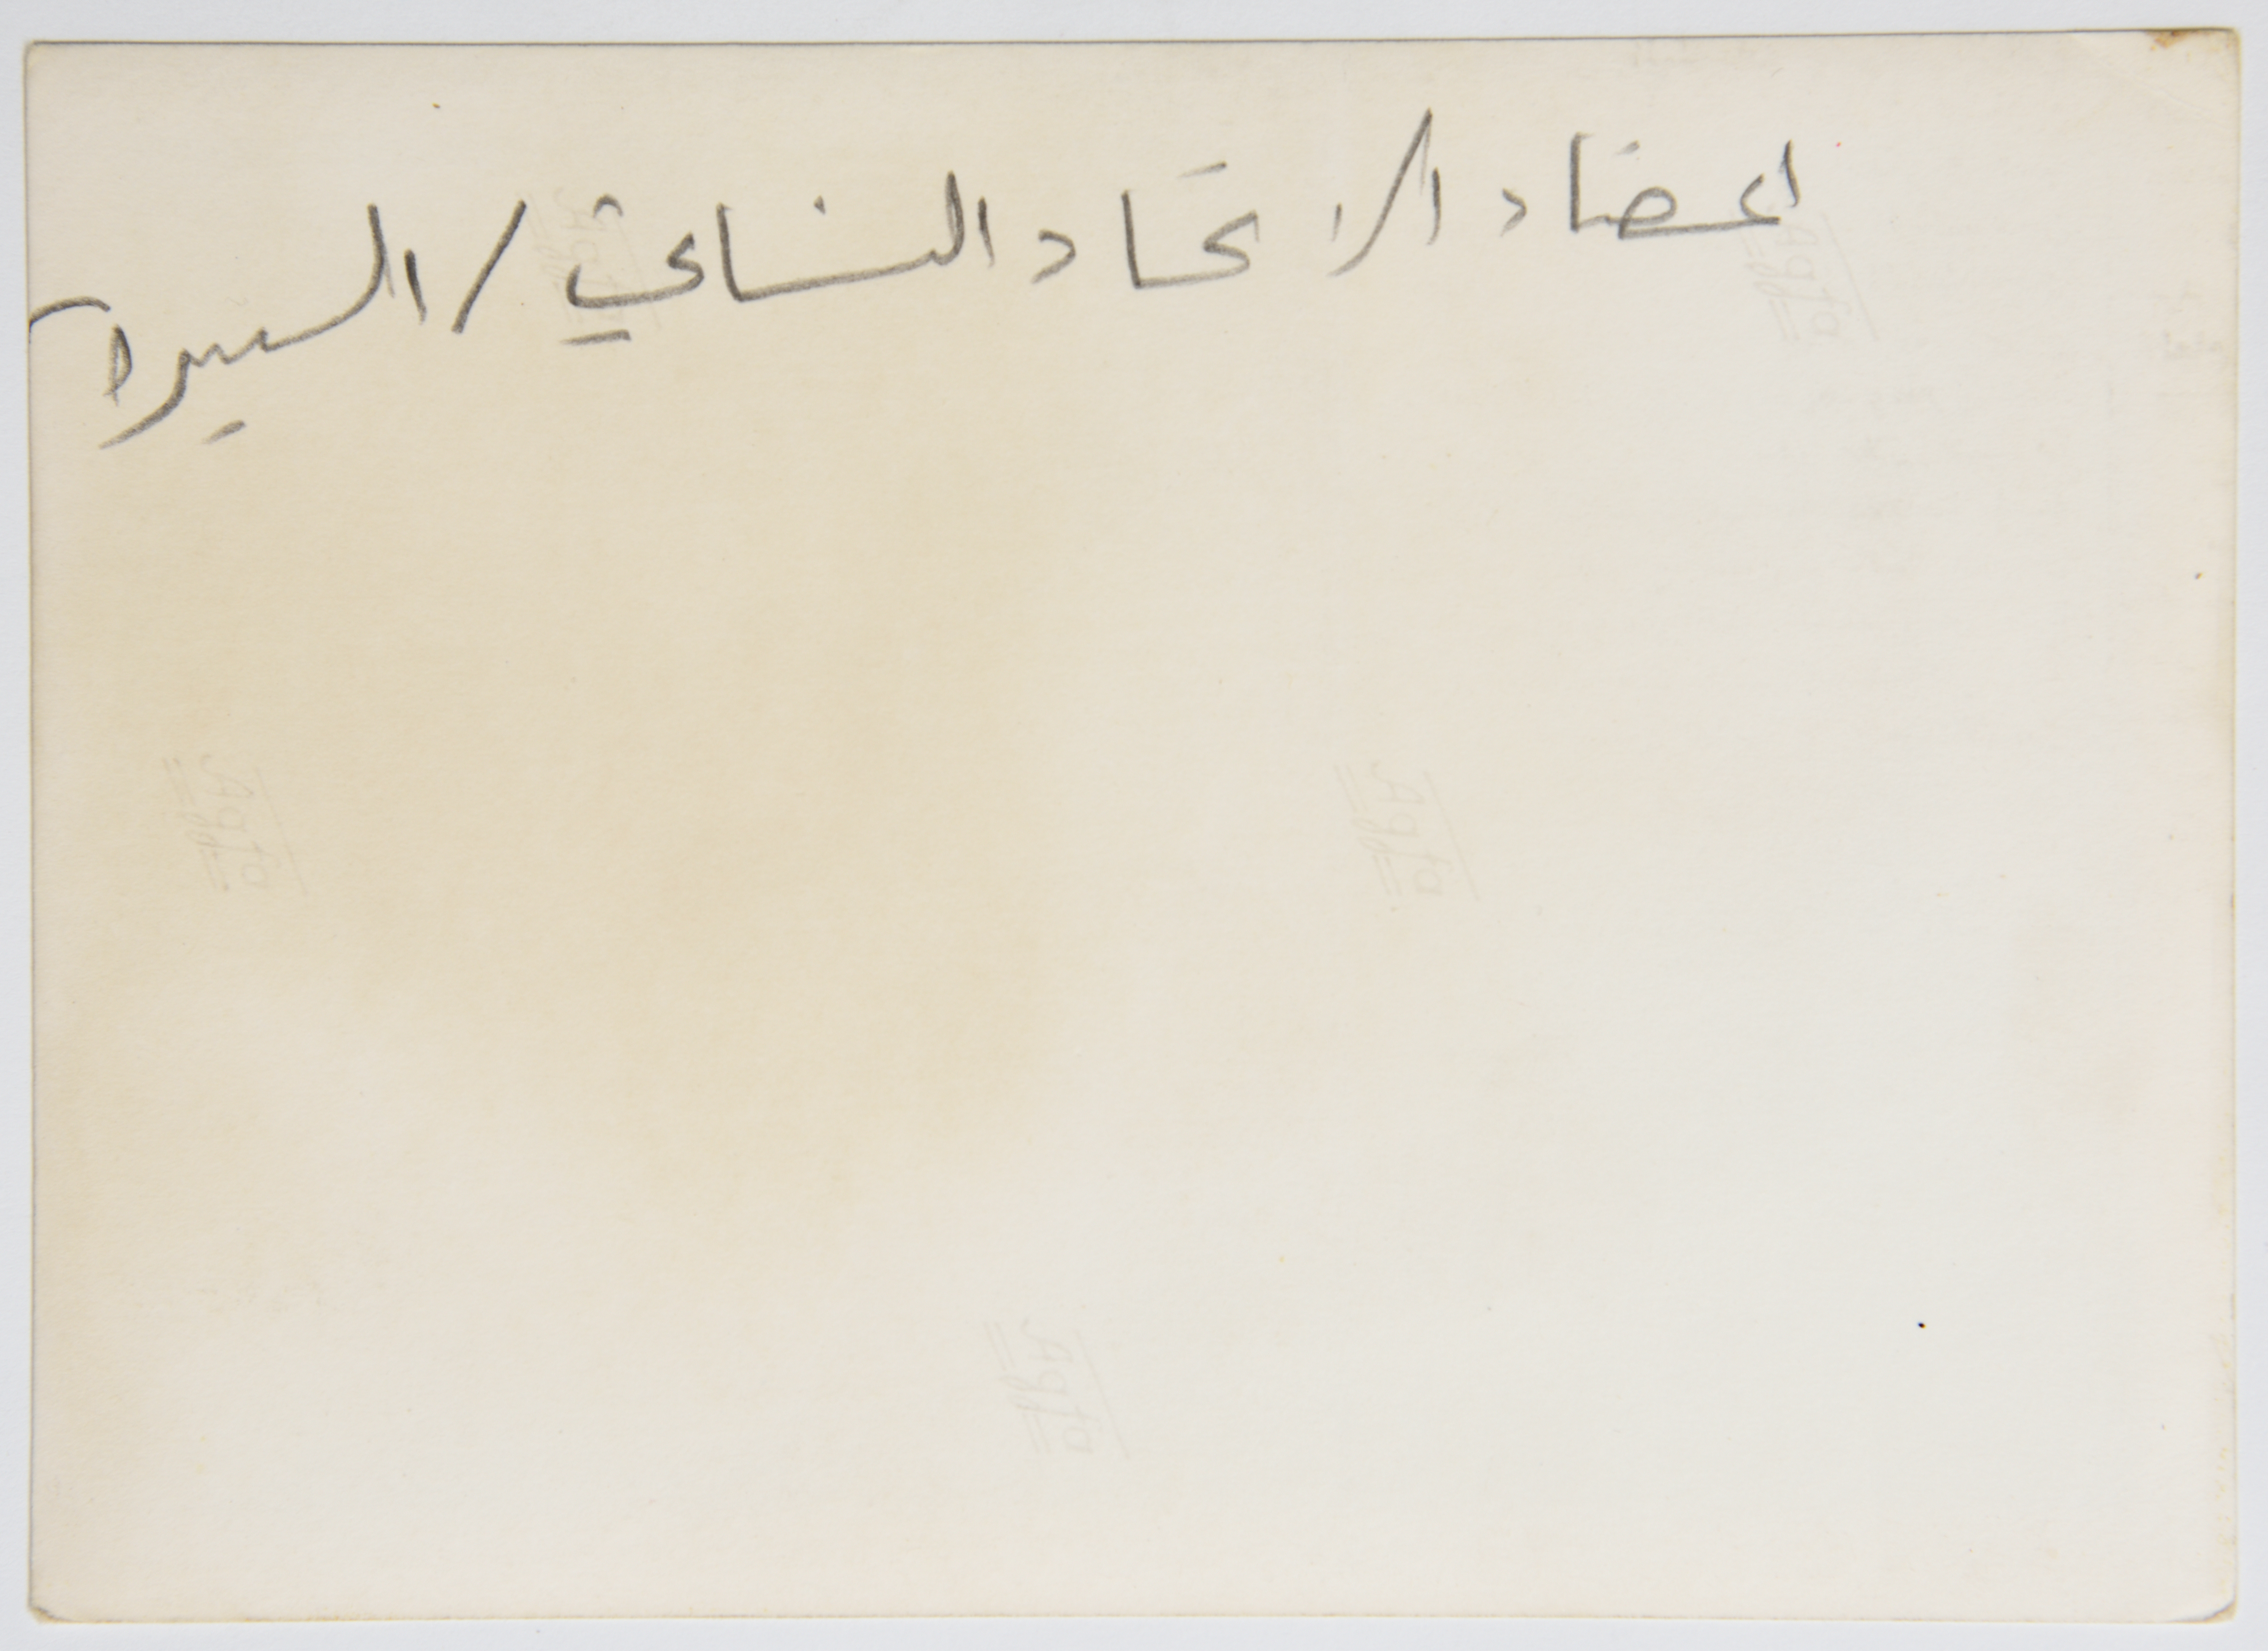 اعضاء الاتحاد النسائي / البيرة
Agfa
Agfa
Agfa
Agfa
Agfa